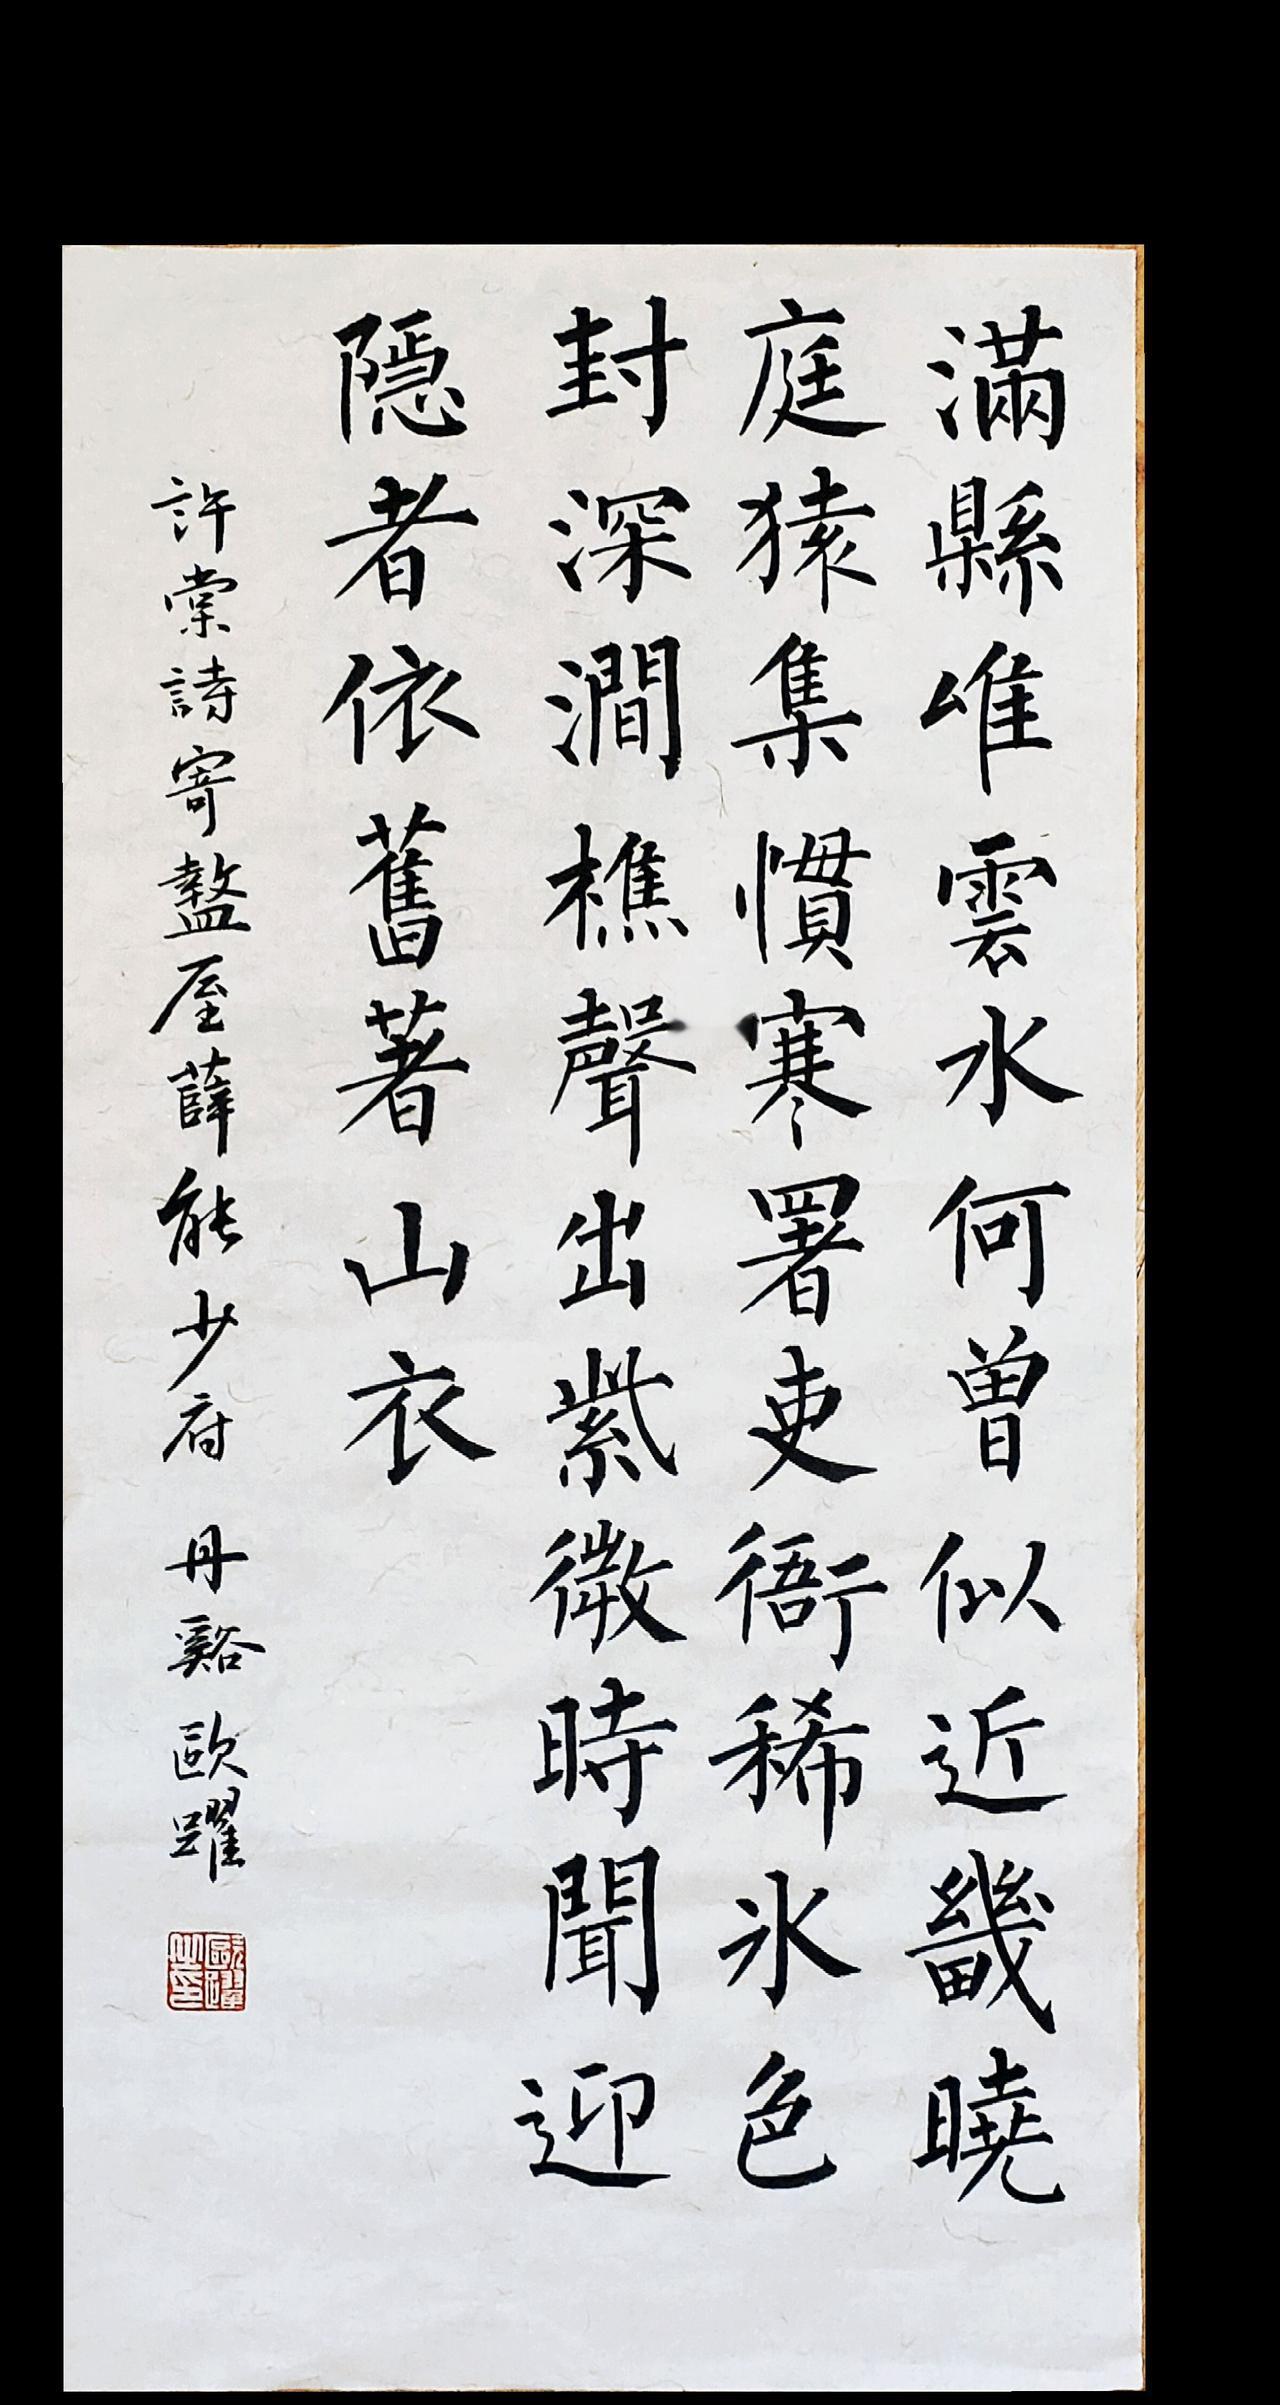 滿縣唯雲水何曾似近畿曉
庭猿集慣寒署吏衙稀冰色
封深澗樵聲出紫微時聞迎
隱者依舊著山衣
許棠詩寄盩厔薛能少府 丹谿歐躍
歐躍之印